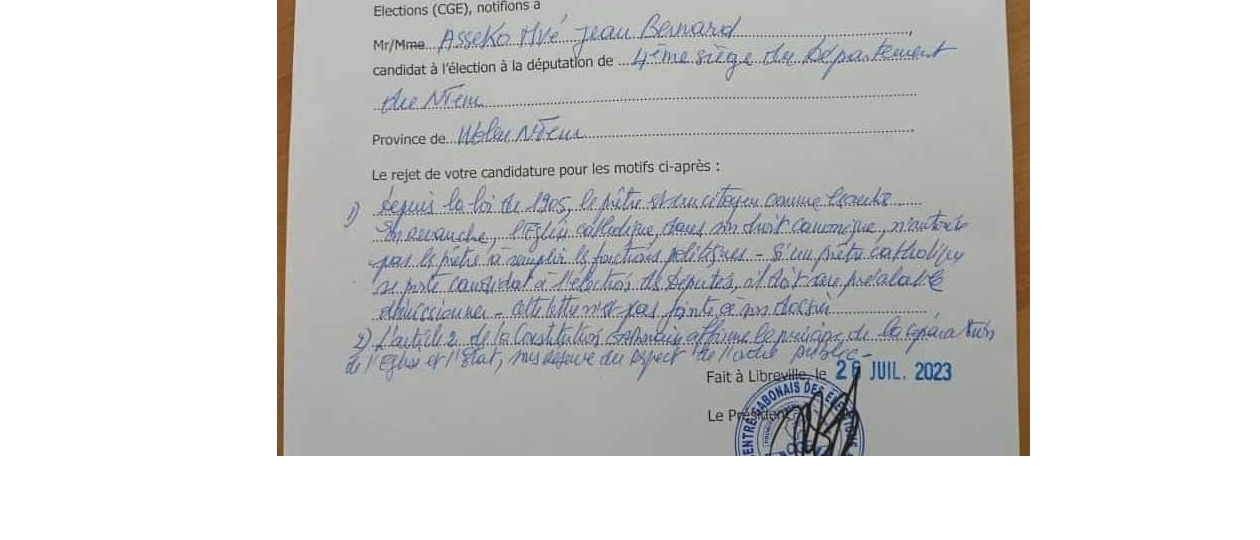 Elections (CGE), notifions à
Mr/Mme Asseko Mvé Jean Bernard
candidat à l'élection à la députation de 4ème siège du Département
du Ntem
Province de Woleu Ntem
Le rejet de votre candidature pour les motifs ci-après :
1) Depuis la loi de 1905, le prêtre est un citoyen comme
En revanche, l'Eglise catholique, dans son droit canonique, n'autorise
pas le prêtre à remplir les fonctions politiques - Si un prêtre catholique
se porte candidat à l'élection des députés, il doit au préalable
démissionner - cette lettre n'est pas jointe à son dossier
2) L'article 2 de la Constitution Gabonaise affirme le principe de la séparation
de l'Eglise et l'Etat, sous réserve du respect de l'ordre public -
Fait à Libreville, le 26 JUIL. 2023
Le Président
CENTRE GABONAIS DES ELECTIONS
CGE